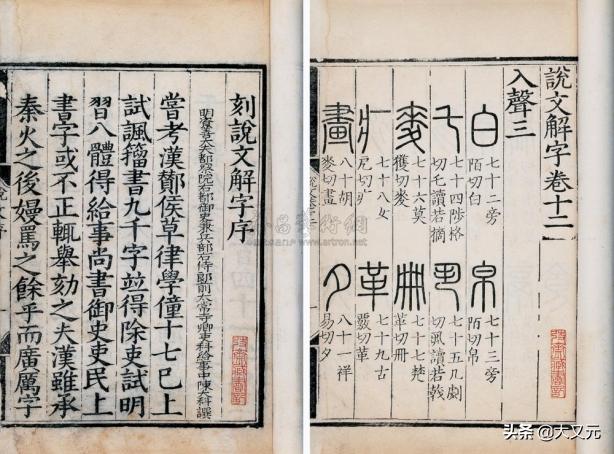 刻說文解字序
明賚善大夫都察院右都御史兼兵部右侍郎前太常寺卿吏科給事中陳大科譔
嘗考漢酇侯草律學僮十七已上
試諷籀書九千字竝得除吏試明
習八體得給事尚書御史吏民上
書字或不正輒舉劾之夫漢雖承
秦火之後嫚罵之餘乎而廣厲字
說文解字卷十二
入聲三
白 七十二旁
陌切白
帛 七十三旁
陌切帛
乇 七十四陟格
切乇讀若摘
丮 七十五几劇
切丮讀若戟
麥 七十六莫
獲切麥
冊 七十七楚
革切冊
疒 七十八女
戹切疒
革 七十九古
覈切革
畫 八十胡
麥切畫
夕 八十一祥
易切夕
雅昌藝術網
www.artron.net
头条 @大又元